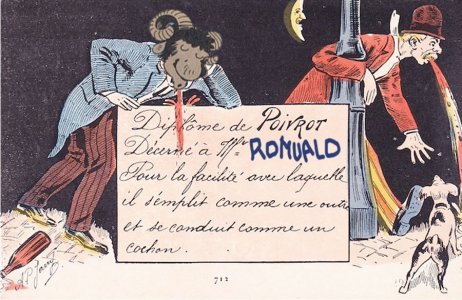 Diplôme de POIVROT
Décerné à Mr ROMUALD
Pour la facilité avec laquelle
il s'emplit comme une outre
et se conduit comme un
cochon.
712